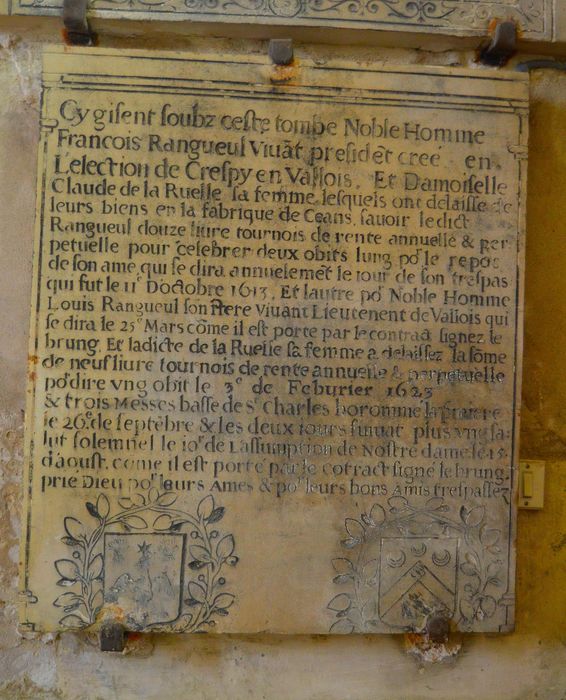 Cy gisent soubz ceste tombe Noble Homme
Francois Rangueul Viuāt presidēt creé en
Lelection de Crespy en Vallois, Et Damoiselle
Claude de la Ruelle sa femme, lesquels ont delaisse de
leurs biens en la fabrique de Ceans, sauoir ledict
Rangueul douze liure tournois de rente annuelle & per
petuelle pour celebrer deux obits lung po.r le repos
de son ame, qui se dira annuelemēt le iour de son trespas
qui fut le 11.e D'octobre 1613, Et lautre po.r Noble Homme
Louis Rangueul son frere viuant Lieutenent de Vallois qui
se dira le 25.e Mars cōme il est porte par le contract signez le
brung, Et ladicte de la Ruelle sa femme a delaissez la sōme
de neuf liure tournois de rente annuelle & perpetuelle
po.r dire vng obit le 3.e de Feburier 1623
& trois Messes basse de S.t Charles boromme la
le 26.e de septēbre & les deux iours suiuāt plus vng sa
lut solemnel le io.r de Lassumption de Nostre dame le 15.
d'aoust, come il est porte par le cōtract signe le brung,
prie Dieu po.r leurs Ames & po.r leurs bons Amis trespassez